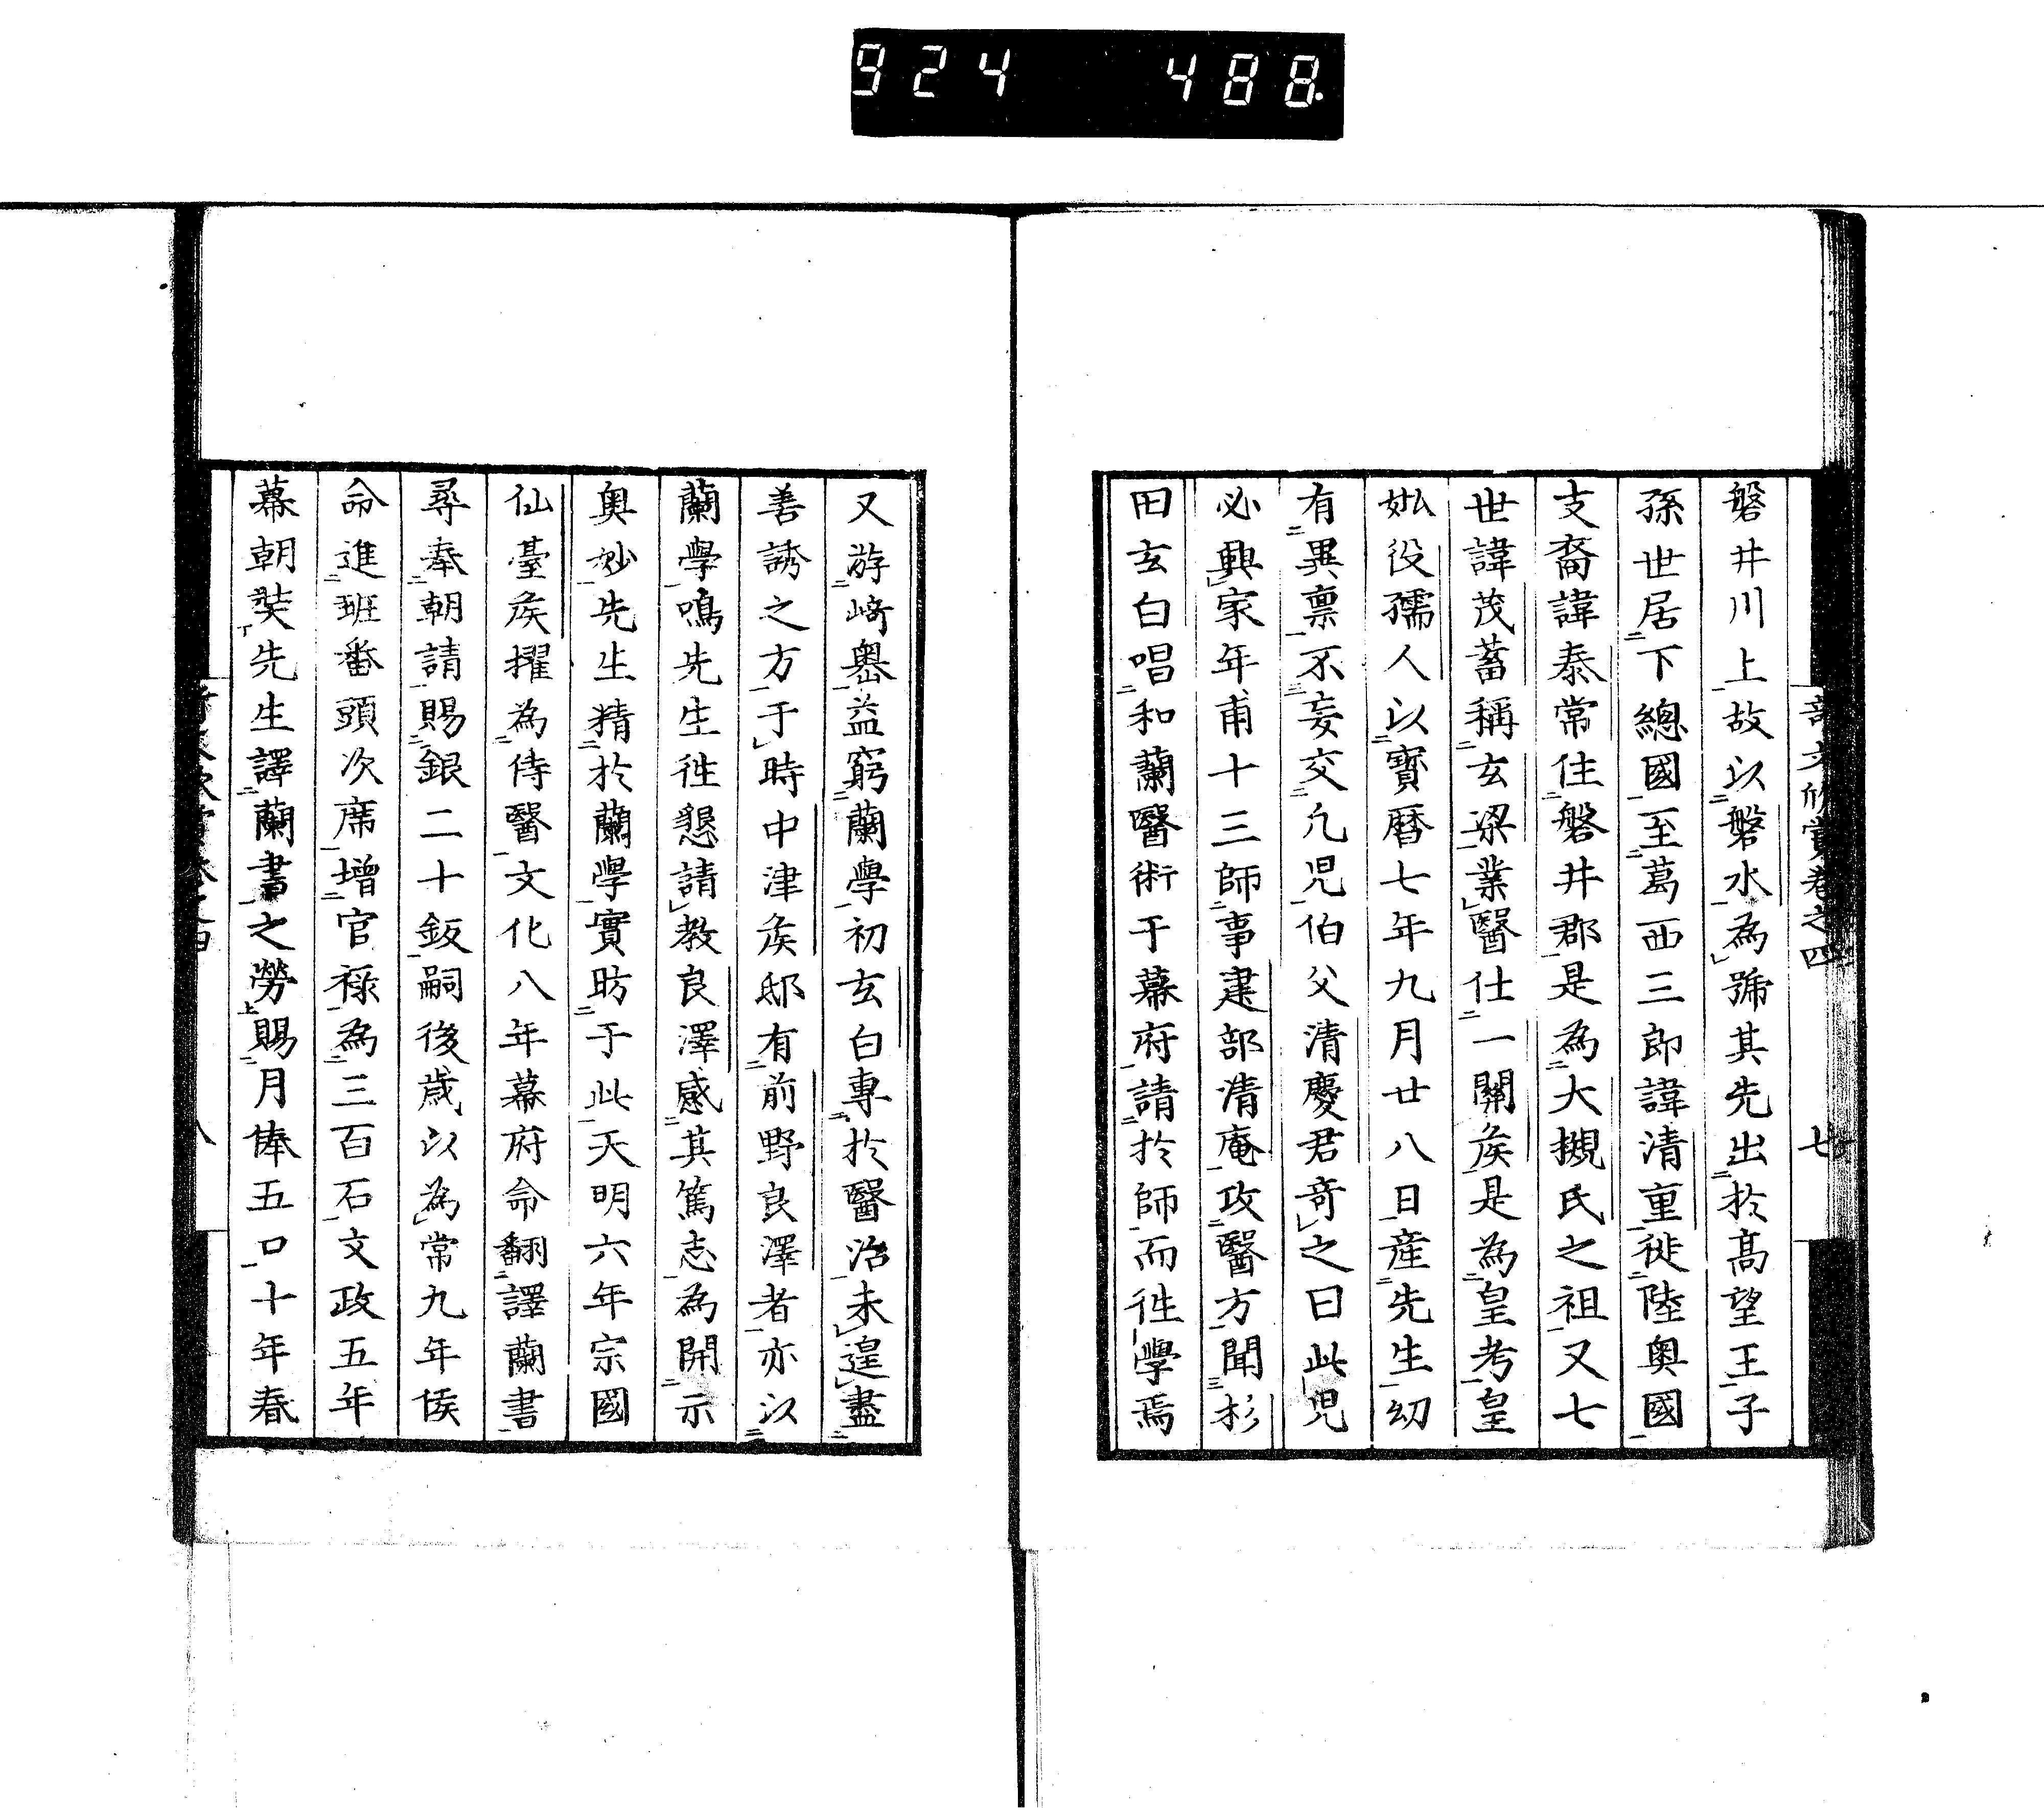 924 488.
磐井川上故以磐水為號其先出於髙望王子
孫世居下總國至葛西三郎諱清重徙陸奥國
支裔諱泰常住磐井郡是為大槻氏之祖又七
世諱茂蓄稱玄梁業醫仕一關矦是為皇考皇
妣役孺人以寳曆七年九月廿八日産先生幼
有異禀不妄交凢児伯父清慶君竒之曰此児
必興家年甫十三師事建部清庵攻醫方聞杉
田玄白唱和蘭醫術于幕府請於師而徃學焉
七
又游﨑嶴益窮蘭學初玄白專於醫治未遑盡
善誘之方于時中津矦邸有前野良澤者亦以
蘭學鳴先生徃懇請教良澤感其篤志為開示
奥妙先生精於蘭學實昉于此天明六年宗國
仙臺矦擢為侍醫文化八年幕府命翻譯蘭書
尋奉朝請賜銀二十鈑嗣後歳以為常九年矦
命進班番頭次席增官禄為三百石文政五年
幕朝奬先生譯蘭書之勞賜月俸五口十年春
八